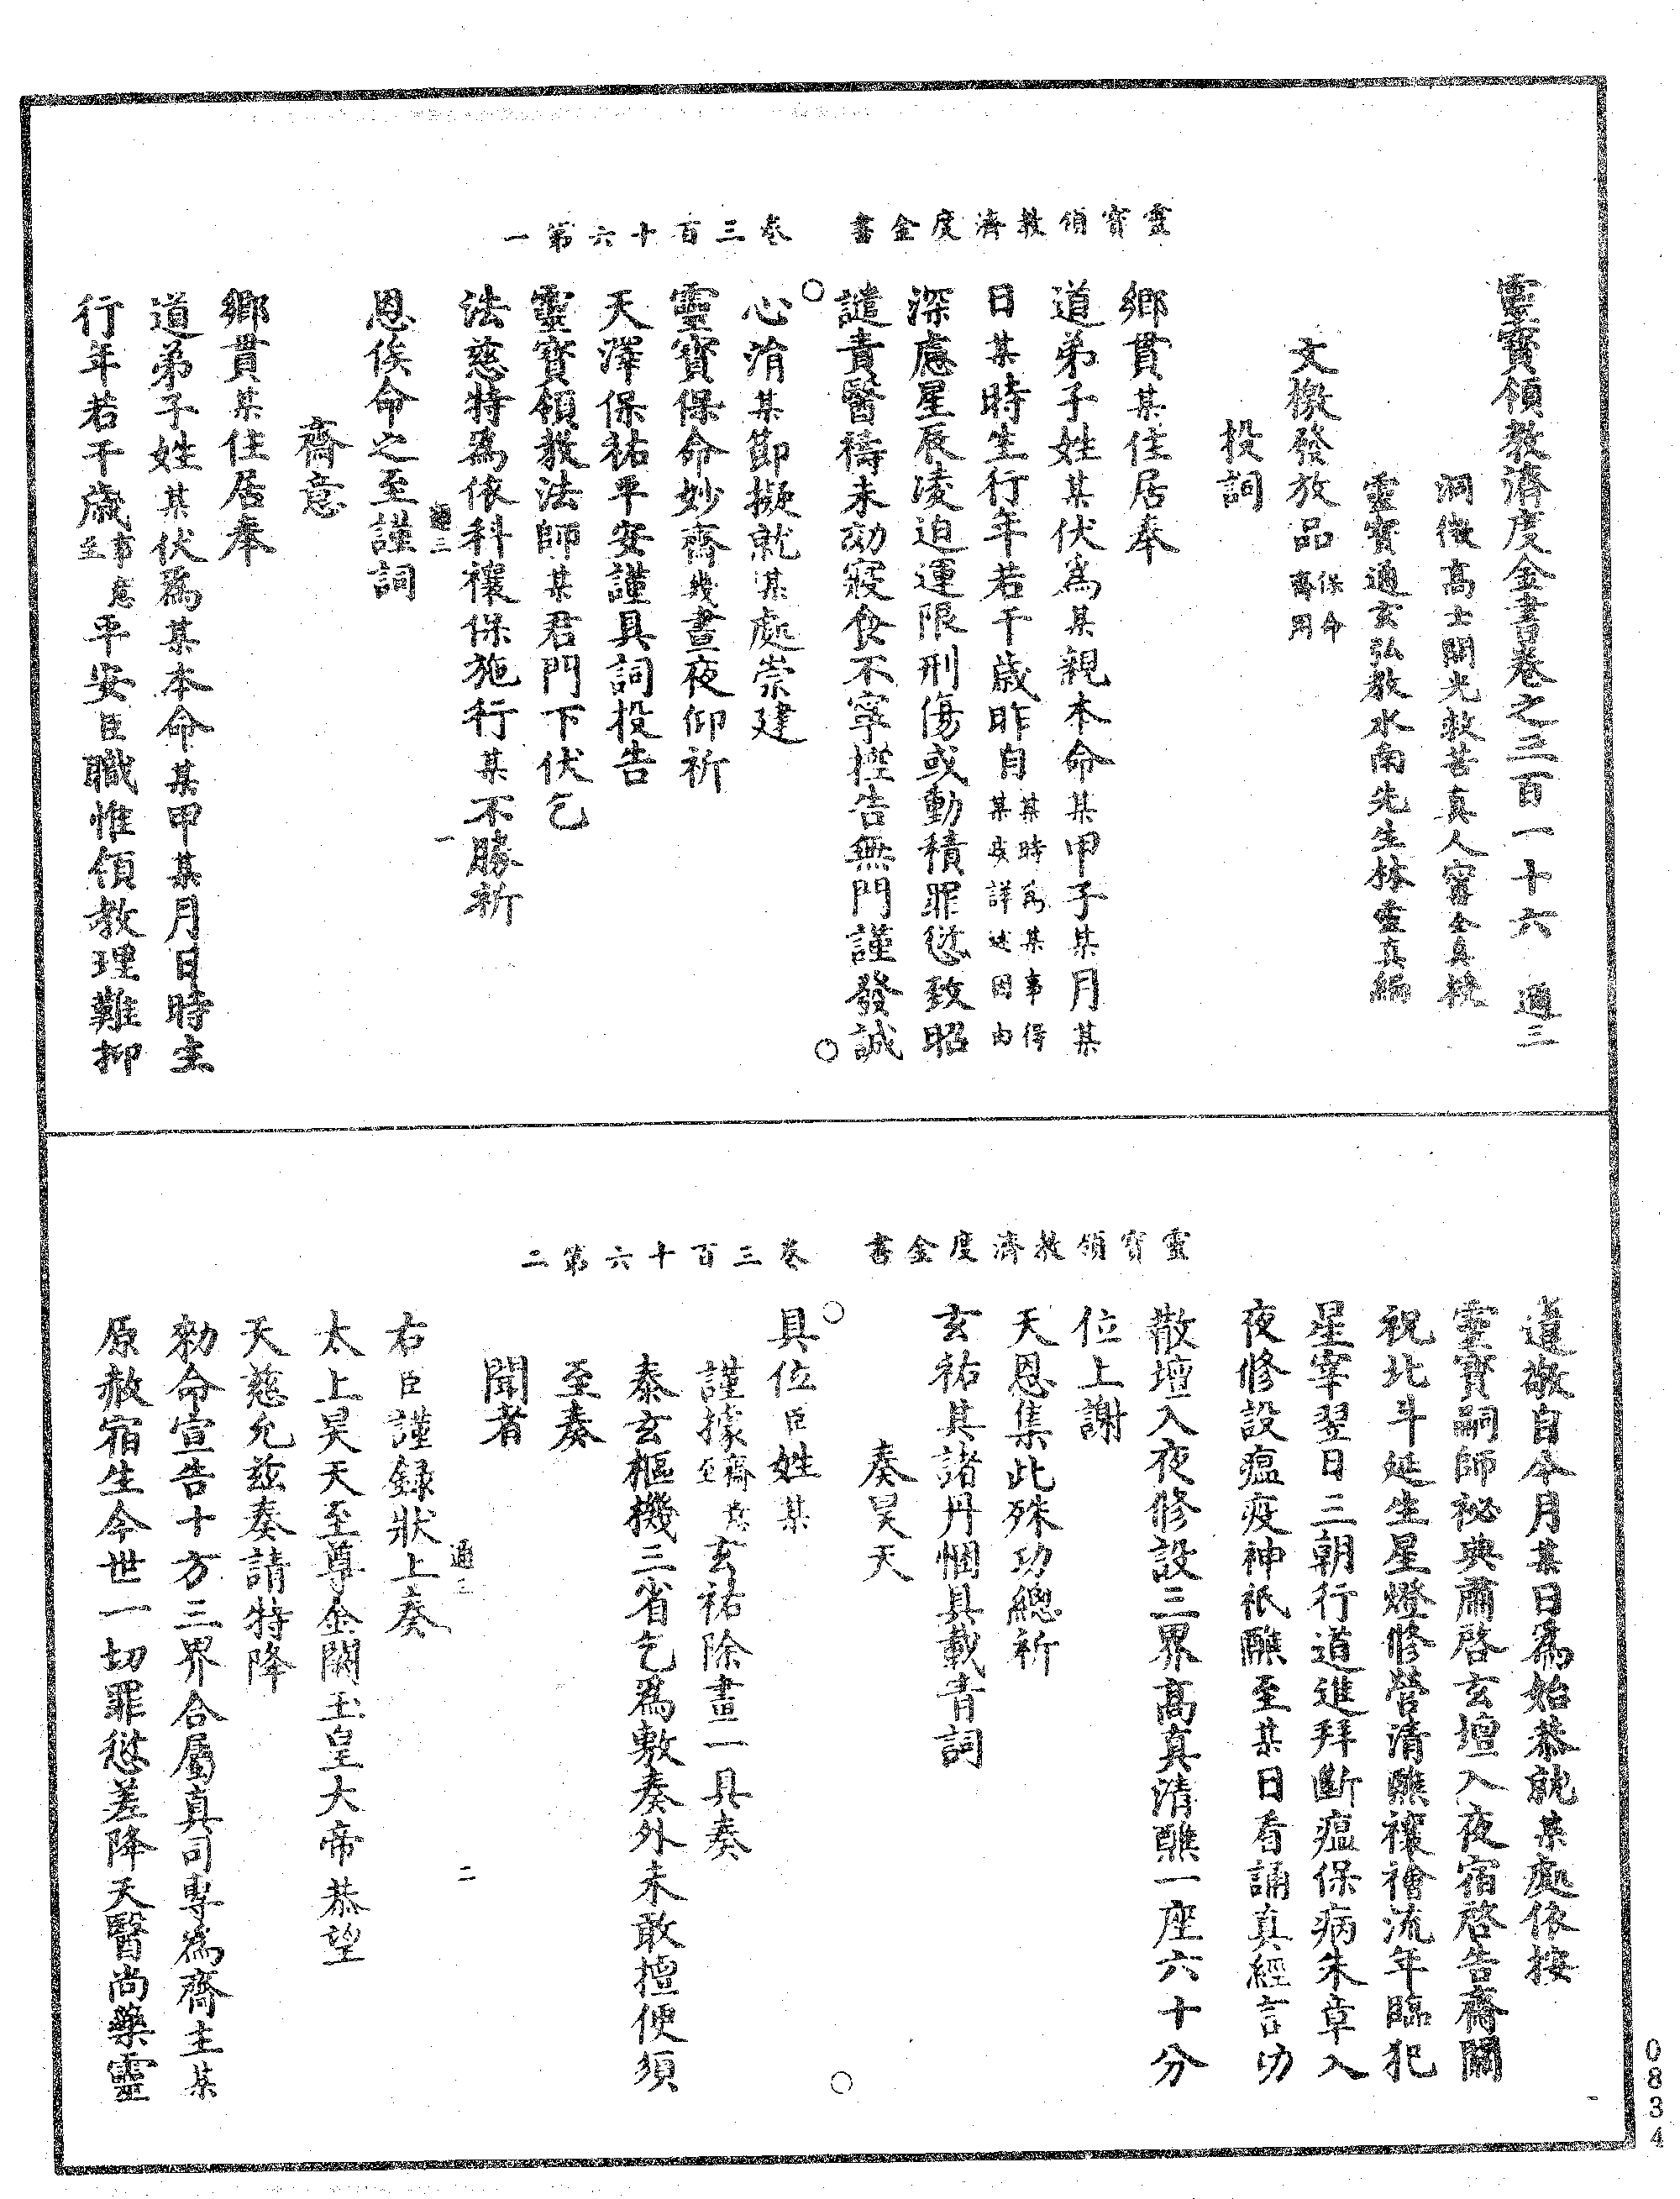 靈寶領教濟度金書　卷三百十六第一
靈寶領教濟度金書卷之三百一十六　通三
洞微高士開光救苦真人甯全真授
靈寶通玄弘教水南先生林靈真編
文檄發放品保命齋用
投詞
鄉貫某住居奉
道弟子姓某伏為某親本命某甲子某月某
日某時生行年若干歲昨自某時為某事得某疾詳述因由
深慮星辰凌迫運限刑傷或動積罪愆致昭
譴責醫禱未効寢食不寧控告無門謹發誠
心涓某節擬就某處崇建
靈寶保命妙齋幾晝夜仰祈
天澤保祐平安謹具詞投告
靈寶領教法師某君門下伏乞
法慈特為依科禳保施行某不勝祈
通三　一
恩俟命之至謹詞
齋意
鄉貫某住居奉
道弟子姓某伏為某本命某甲某月日時生
行年若干歲事意至平安臣職惟領教理難抑
靈寶領教濟度金書　卷三百十六第二
道敬自今月某日為始恭就某處依按
靈寶嗣師祕典肅啓玄壇入夜宿啓告齋關
祝北斗延生星燈修營清醮禳禬流年臨犯
星宰翌日三朝行道進拜斷瘟保病朱章入
夜修設瘟疫神祇醮至某日看誦真經言功
散壇入夜修設三界高真清醮一座六十分
位上謝
天恩集此殊功總祈
玄祐其諸丹悃具載青詞
奏昊天
具位臣姓某
謹據齋意至玄祐除畫一具奏
泰玄樞機三省乞為敷奏外未敢擅便須
至奏
聞者
通三　二
右臣謹錄狀上奏
太上昊天至尊金闕玉皇大帝恭望
天慈允茲奏請特降
勑命宣告十方三界合屬真司專為齋主某
原赦宿生今世一切罪愆差降天醫尚藥靈
0834